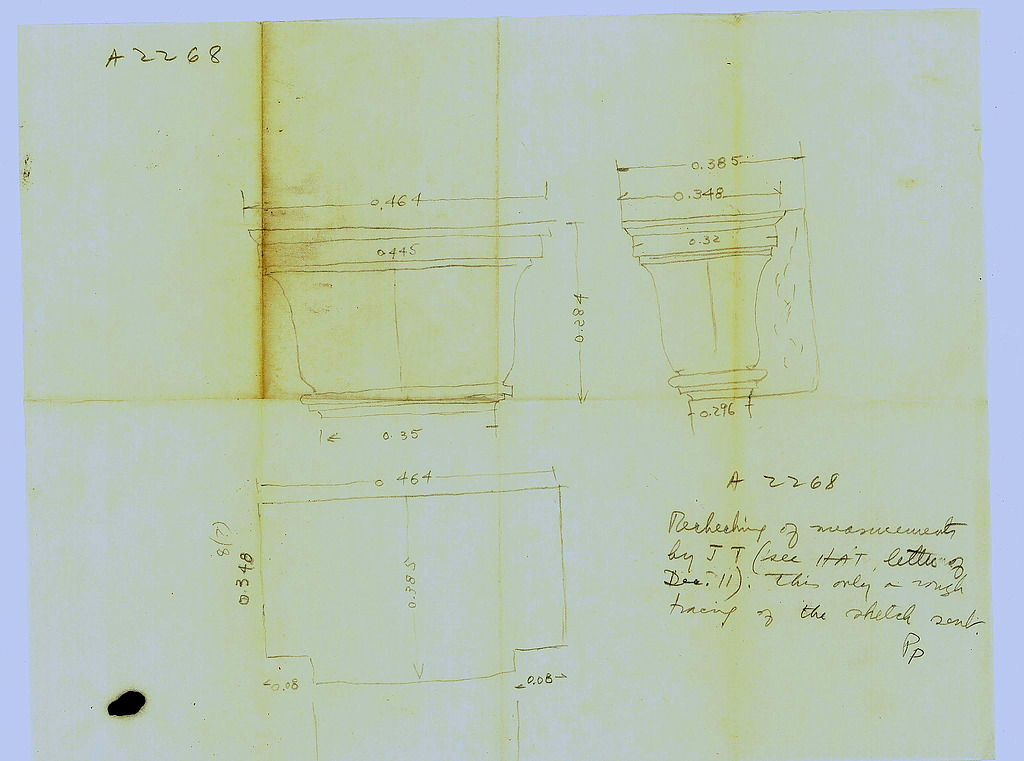 A 2268
0.385
0.348
0.464
0.32
0.445
0.284
0.296
0.35
0.464
A 2268
8(?)
0.348
0.385
Rechecking of measurements
by J T (see HAT, letter of
Dec. 11). This only a rough
tracing of the sketch sent.
Pp
0.08
0.08